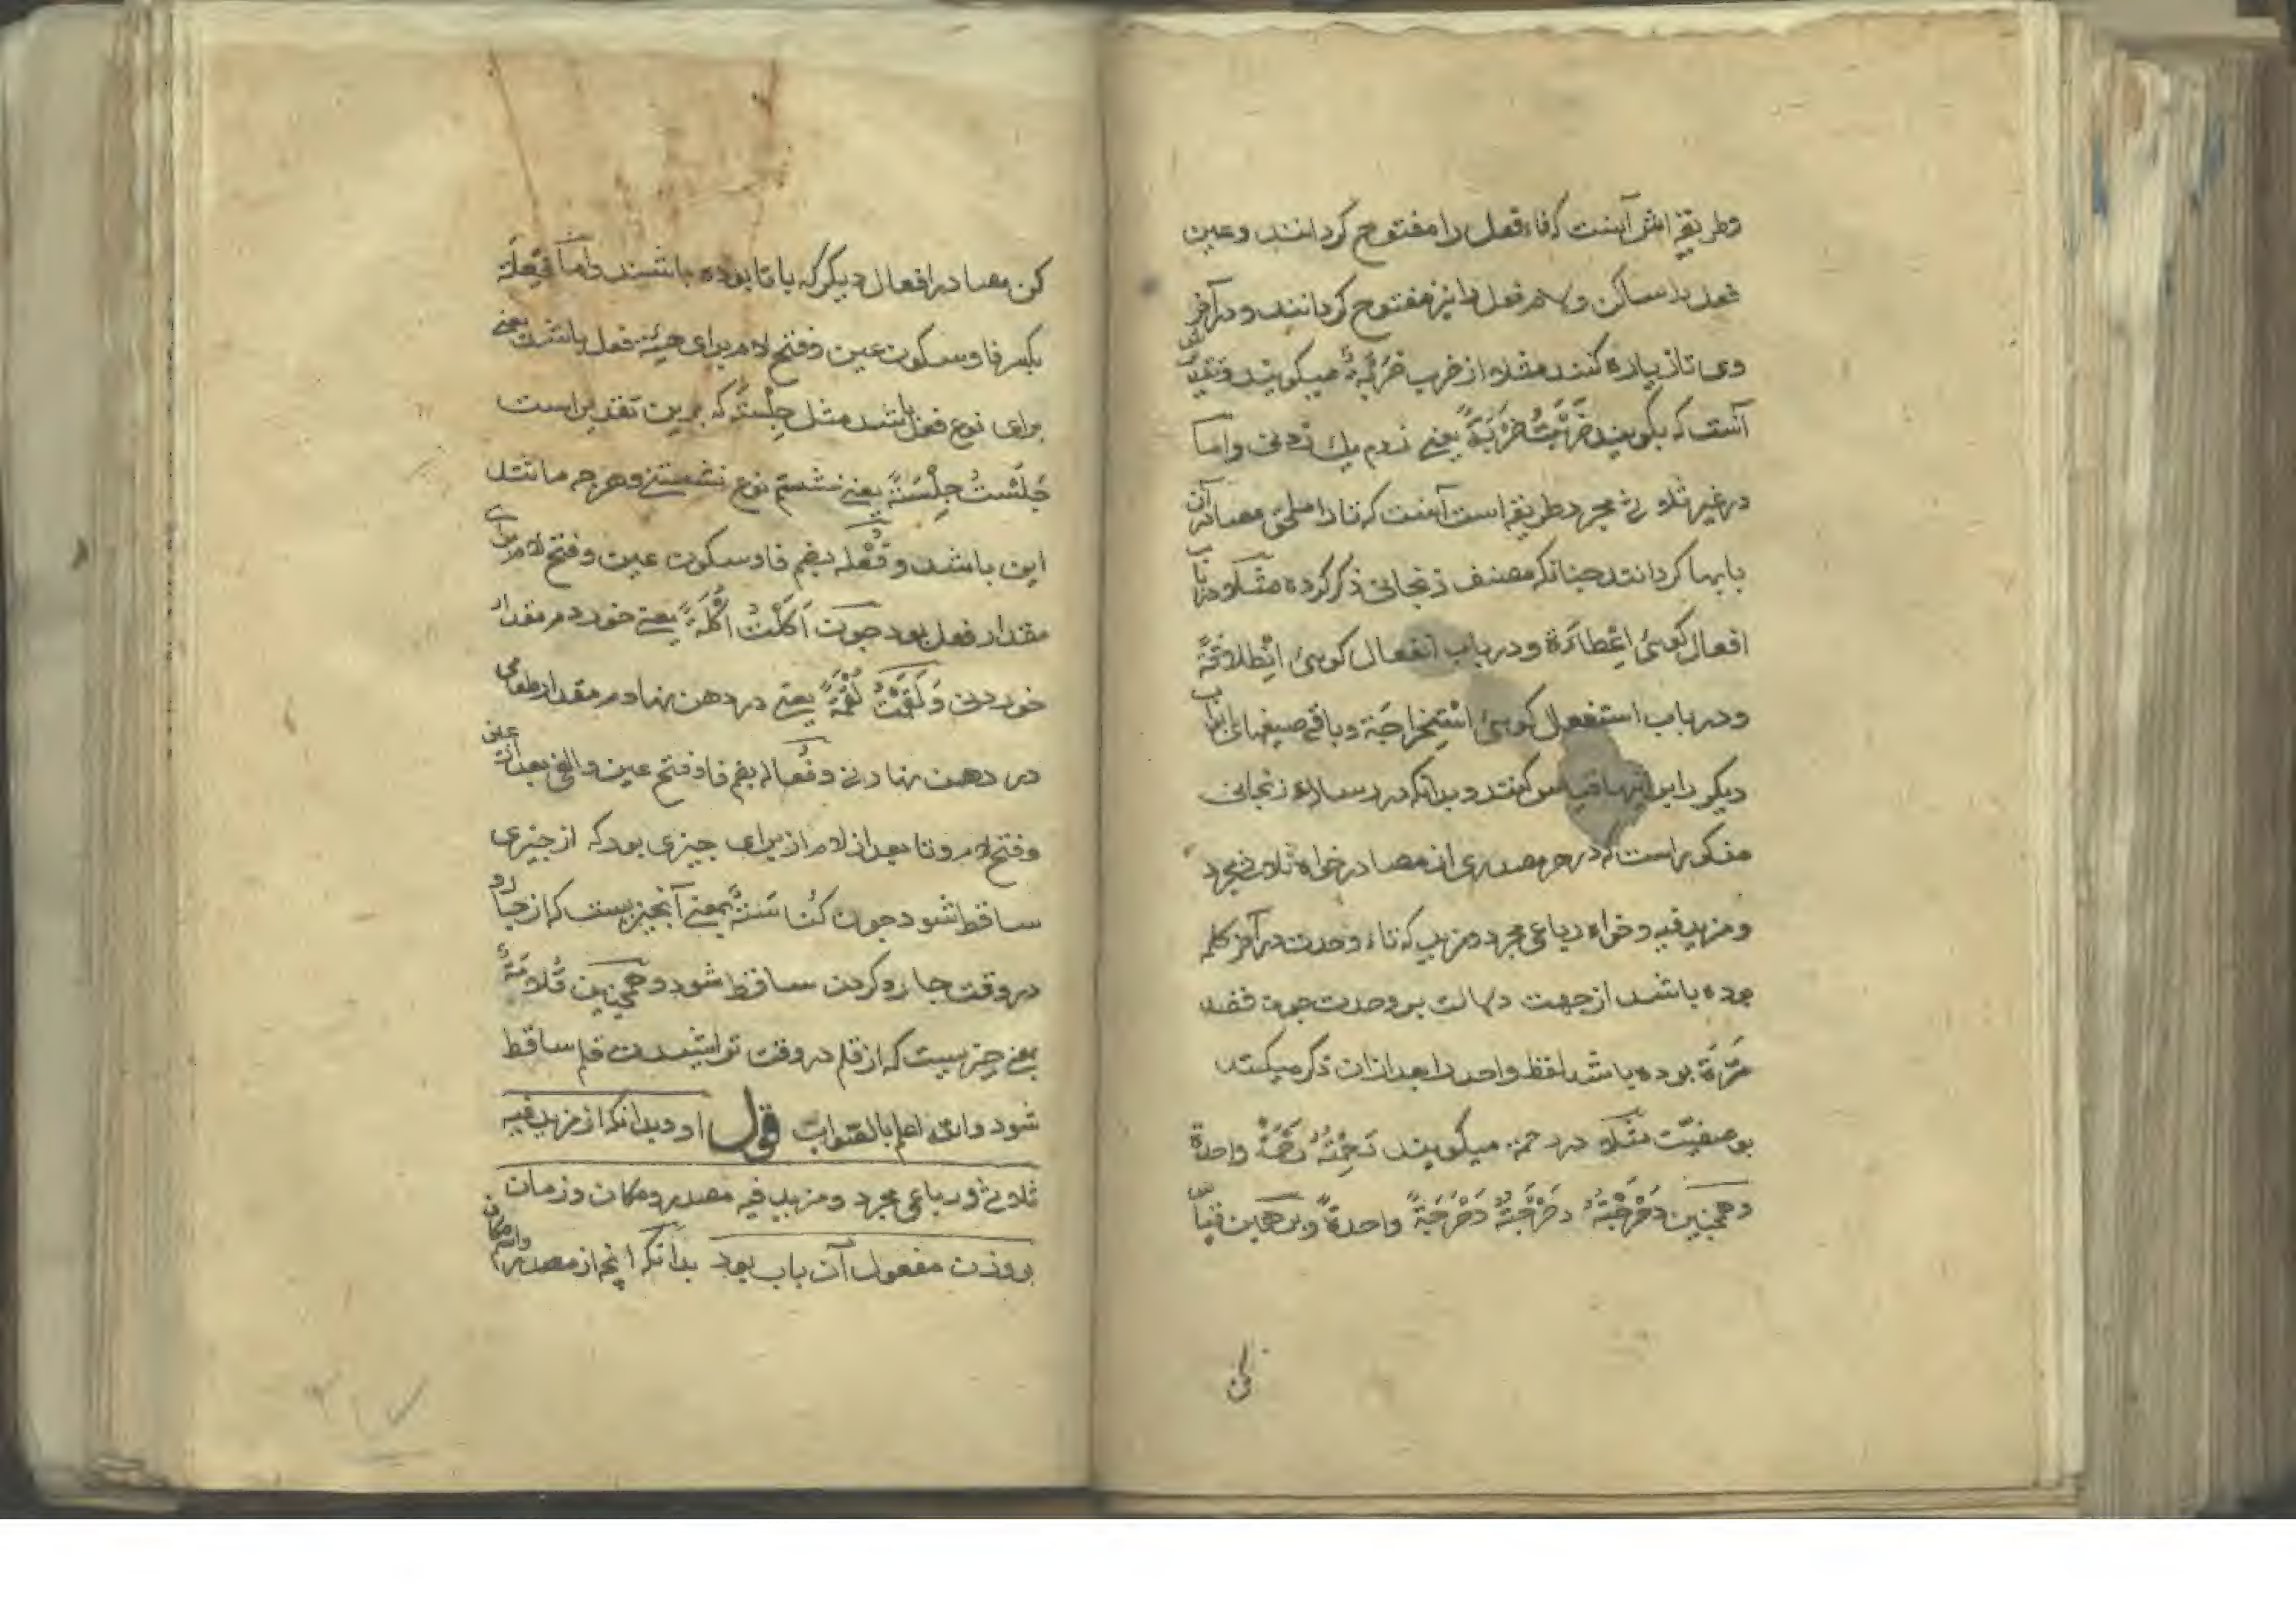 وطریقه اش آنست که فاء فعل را مفتوح کردانند وعین
فعل را ساکن ولام فعل را نیز مفتوح کردانند ودر آخر
وی تا زیاره کنند مثلا از ضرب ضَرْبَةٌ میکویند وتقدیرش
آنست که بکویند ضَرَبْتُ ضَرْبَةً یعنی زدم یک زدنی واما
در غیر ثلاثی مجرد طریقه است آنست که تا را ملحق مصادر آن
بابها کردانند چنانکه مصنف زنجانی ذکر کرده مثلا در باب
افعال کوئی اِعْطاءَة ودر باب انفعال کوئی اِنْطِلاقَةً
ودر باب استفعال کوئی اسْتِخراجَة وباقی صیغهای بابهای
دیکر را براینها قیاس کنند وبدانکه در رساله زنجانی
مذکور است که در هر مصدری از مصادر خواه ثلاثی مجرد
ومزید فیه وخواه رباعی مجرد ومزید که تاء وحدت در آخر کلمه
بوده باشد از جهت دلالت بر وحدت چون قصد
مَرّة بوده باشد لفظ واحد را بعد از آن ذکر میکنند
بوصفیّت مثلا در رحمة میکویند رَحِمْتُهُ رَحْمَةً واحدة
وهمچنین دَحْرَجْتُهُ دَحْرَجْتُهُ دَحْرَجَةً واحدةً وبر همین قیاس
کن
کن مصادر افعال دیکر که با تا بوده باشند واما فِعْلَة
بکسر فا وسکون عین وفتح لام برای هیئة فعل باشد یعنی
برای نوع فعل باشد مثل جِلْسَةً که برین تقدیر است
جَلَسْتُ جِلْسَةً یعنی نشستم نوع نشستنی وهرچه مانند
این باشد وفُعْلَه بضم فا وسکون عین وفتح لام برای
مقدار فعل بود چون اَکَلْتُ اُکْلَةً یعنی خوردم مقدار
خوردنی وَ لَقَمْتُ لُقْمَةً یعنی در دهن نهادم مقدار طعامی
در دهن نهادنی وفُعاله بضم فا وفتح عین والف بعد از عین
وفتح لام وتا بعد از لام از برای چیزی بود که از چیزی
ساقط شود چون کُناسَةٌ بمعنی آنچیزیست که از جارو
در وقت جاروکردن ساقط شود وهمچنین قُلامَةٌ
یعنی چیزیست که از قلم در وقت تراشیدن قلم ساقط
شود والله اعلم بالصواب قول او وبدانکه از مزید فیه
ثلاثی ورباعی مجرد ومزید فیه مصدر ومکان وزمان
بروزن مفعول آن باب بود بدانکه آنچه از مصدر واسم مکان